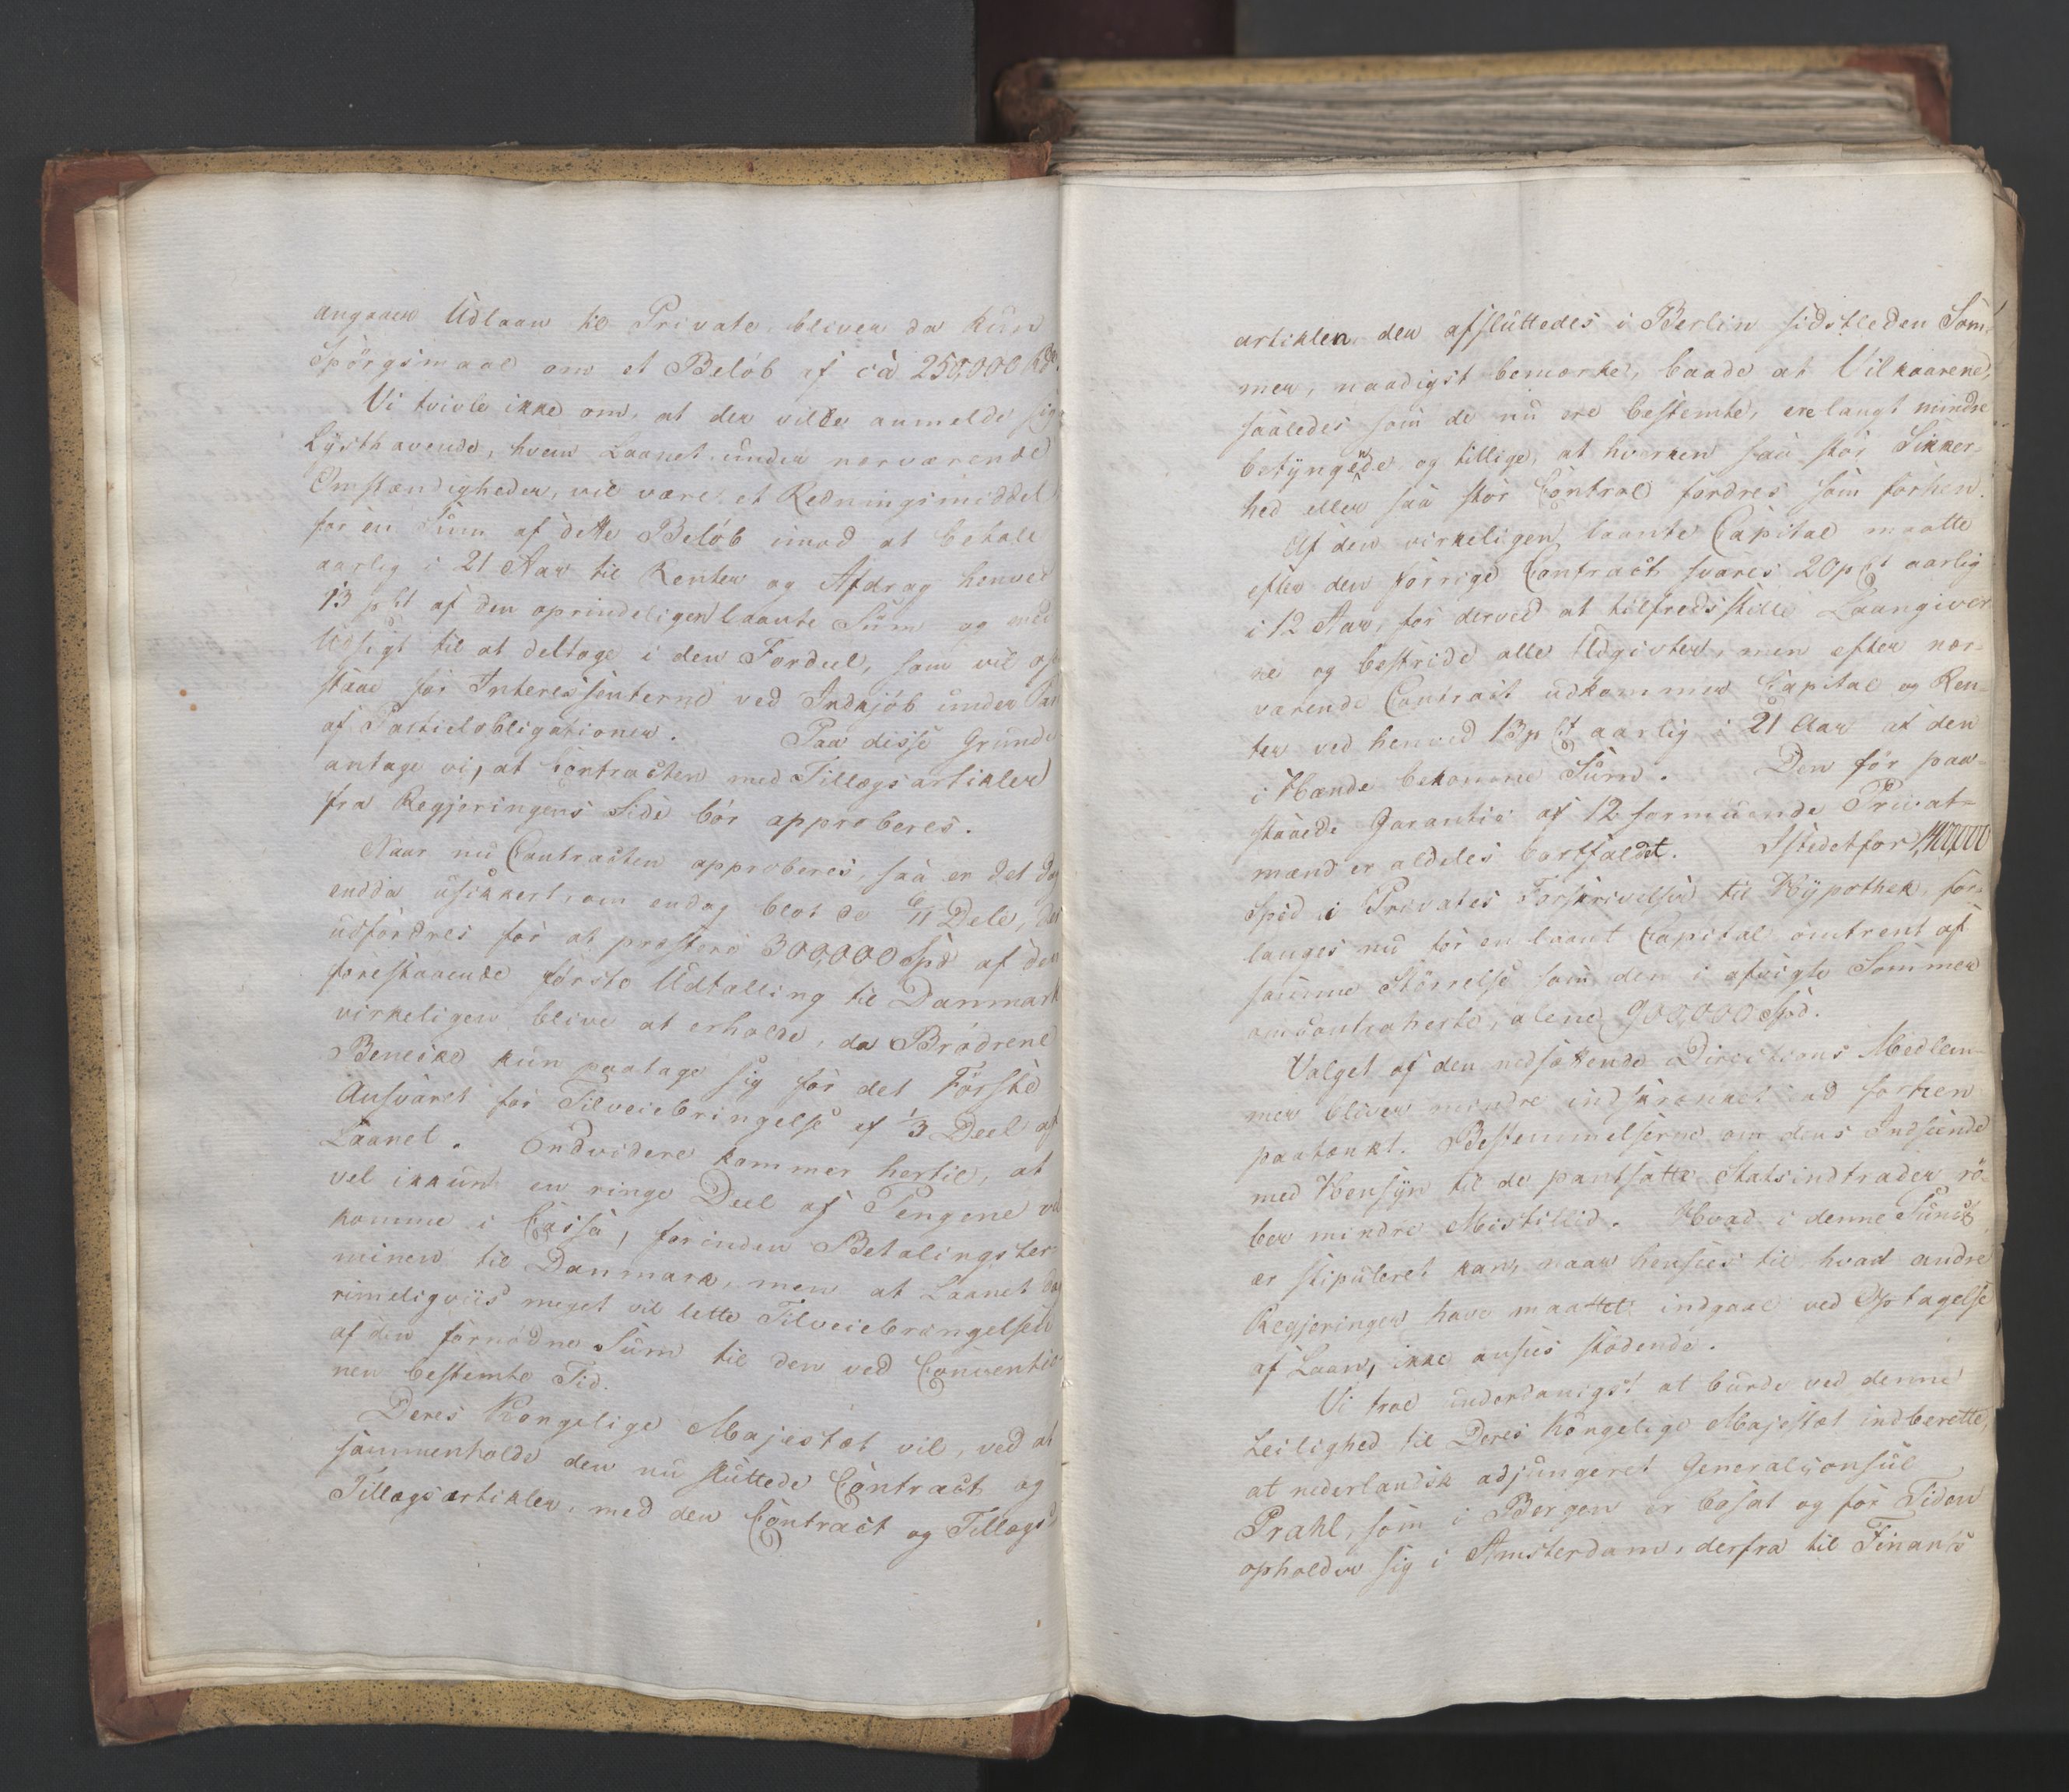 angaaer Udlaan til Private, bliver da kun
Spörgsmaal om et Belöb af ca 250,000 Spd.
Vi tvivle ikke om, at der vilde anmelde sig
Lysthavende, hvem Laanet under nærværende
Omstændigheder, vil være et Redningsmiddel
for en Sum af dette Belöb imod at betale
aarlig i 21 Aar til Renter og Afdrag henved
13 pCt af den oprindeligen laante Sum og med
Udsigt til at deltage i den Fordeel, som vil op-
staae for Interessenterne ved Indkjöb under Pari
af Partielobligationer. Paa disse Grunde
antage vi, at Contracten med Tillægsartikler
fra Regjeringens Side bör approberes.
Naar nu Contracten approberes, saa er det dog
endda usikkert, om endog blot de 6/11 Dele, der
udfordres for at præstere 300,000 Spd af den
forestaaende förste Udtælling til Danmark
virkeligen blive at erholde, da Brödrene
Benecke kun paatage sig for det Förste
Ansvaret for Tilveiebringelse af 1/3 Deel af
Laanet. Endvidere kommer hertil, at
vel ikkun en ringe Deel af Pengene vil
komme i Cassa, forinden Betalingster-
minen til Danmark, men at Laanet dog
rimeligviis meget vil lette Tilveiebringelsen
af den fornödne Sum til den ved Conventio-
nen bestemte Tid.
Deres Kongelige Majestæt vil, ved at
sammenholde den nu sluttede Contract og
Tillægsartikler, med den Contract og Tillægs-
artikler, der afsluttedes i Berlin sidstleden Som-
mer, naadigst bemærke, baade at Vilkaarene,
saaledes som de nu ere bestemte, ere langt mindre
betyngende og tillige, at hverken saa stor Sikker-
hed eller saa stor Control fordres som forhen.
Af den virkeligen laante Capital maatte
efter den forrige Contract svares 20 pCt aarlig
i 12 Aar, for derved at tilfredsstille Laangiver-
ne og bestride alle Udgivter, men efter nær-
værende Contract udkommer Capital og Ren-
ter ved henved 13 pCt aarlig i 21 Aar af den
i Hænde bekomne Sum. Den för paa-
staaede Garantie af 12 formuende Privat-
mænd er aldeles bortfaldet. Istedetfor 1,400,000
Spd i Privates Forskrivelser til Hypothek, for-
langes nu for en laant Capital omtrent af
samme Störrelse som den i afvigte Sommer
omcontraherte, alene 900,000 Spd.
Valget af den nedsættende Directions Medlem-
mer bliver mindre indskrænket end forhen
paatænkt. Bestemmelserne om dens Indseende
med Hensyn til de pantsatte Statsindtræder rö-
ber mindre Mistillid. Hvad i denne Punct
er stipuleret kan, naar hensees til hvad andre
Regjeringer have maattet indgaae ved Optagelse
af Laan, ikke ansees stödende.
Vi troe underdanigst at burde ved denne
Leilighed til Deres Kongelige Majestæt indberette,
at nederlandsk adjungeret Generalconsul
Prahl, som i Bergen er bosat og for Tiden
opholder sig i Amsterdam, derfra til Finants